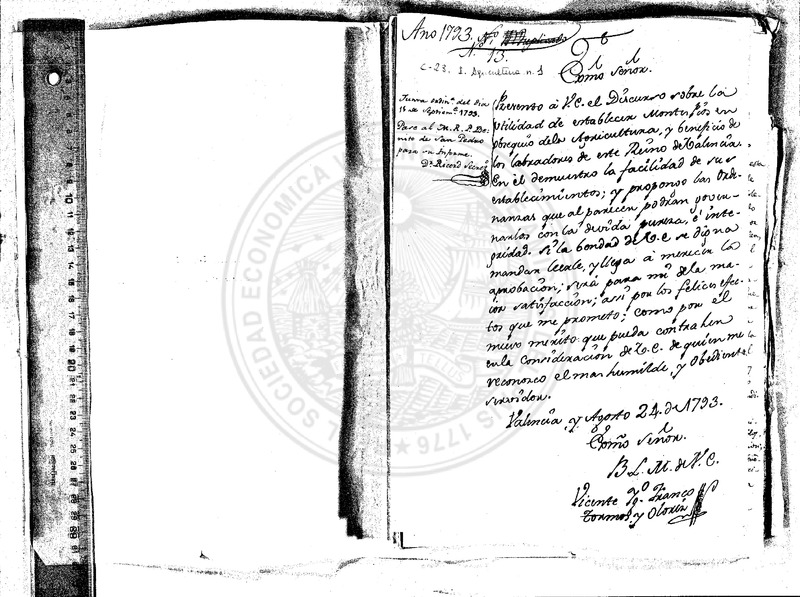 Año 1793. Nº Duplicado
Nº 13.
C-23. I. Agricultura n. 1
Exmo Señor.
Junta ordinª del dia
de Septiemᵉ 1793.
Pase al M. R. P. Be-
nito de San Pedro
para su Informe.
Dn Ricord Secretº
Presento à V.E. el Discurso sobre la
utilidad de establecer Montepios en
obsequio dela Agricultura, y beneficio de
los labradores de este Reino de Valencia.
En èl demuestro la facilidad de sus
establecimientos; y propongo las Orde-
nanzas que al parecer podràn gover-
narlos con la devida pureza, è inte-
gridad. Si la bondad de V.E. se digna
mandar leerle, y llega à merecer la
aprobación; serà para mi dela ma-
ior satisfacción; assi por los felices efec-
tos que me prometo; como por el
nuevo merito que pueda contraher
enla Consideración de V.E. de quien me
reconozco el mas humilde, y Obediente
servidor.
Valencia, y Agosto 24. de 1793.
Exmo Señor.
B. L. M. de V. E.
Vicente Franco
Tormo, y Oloriz
SOCIEDAD ECONOMICA
1776